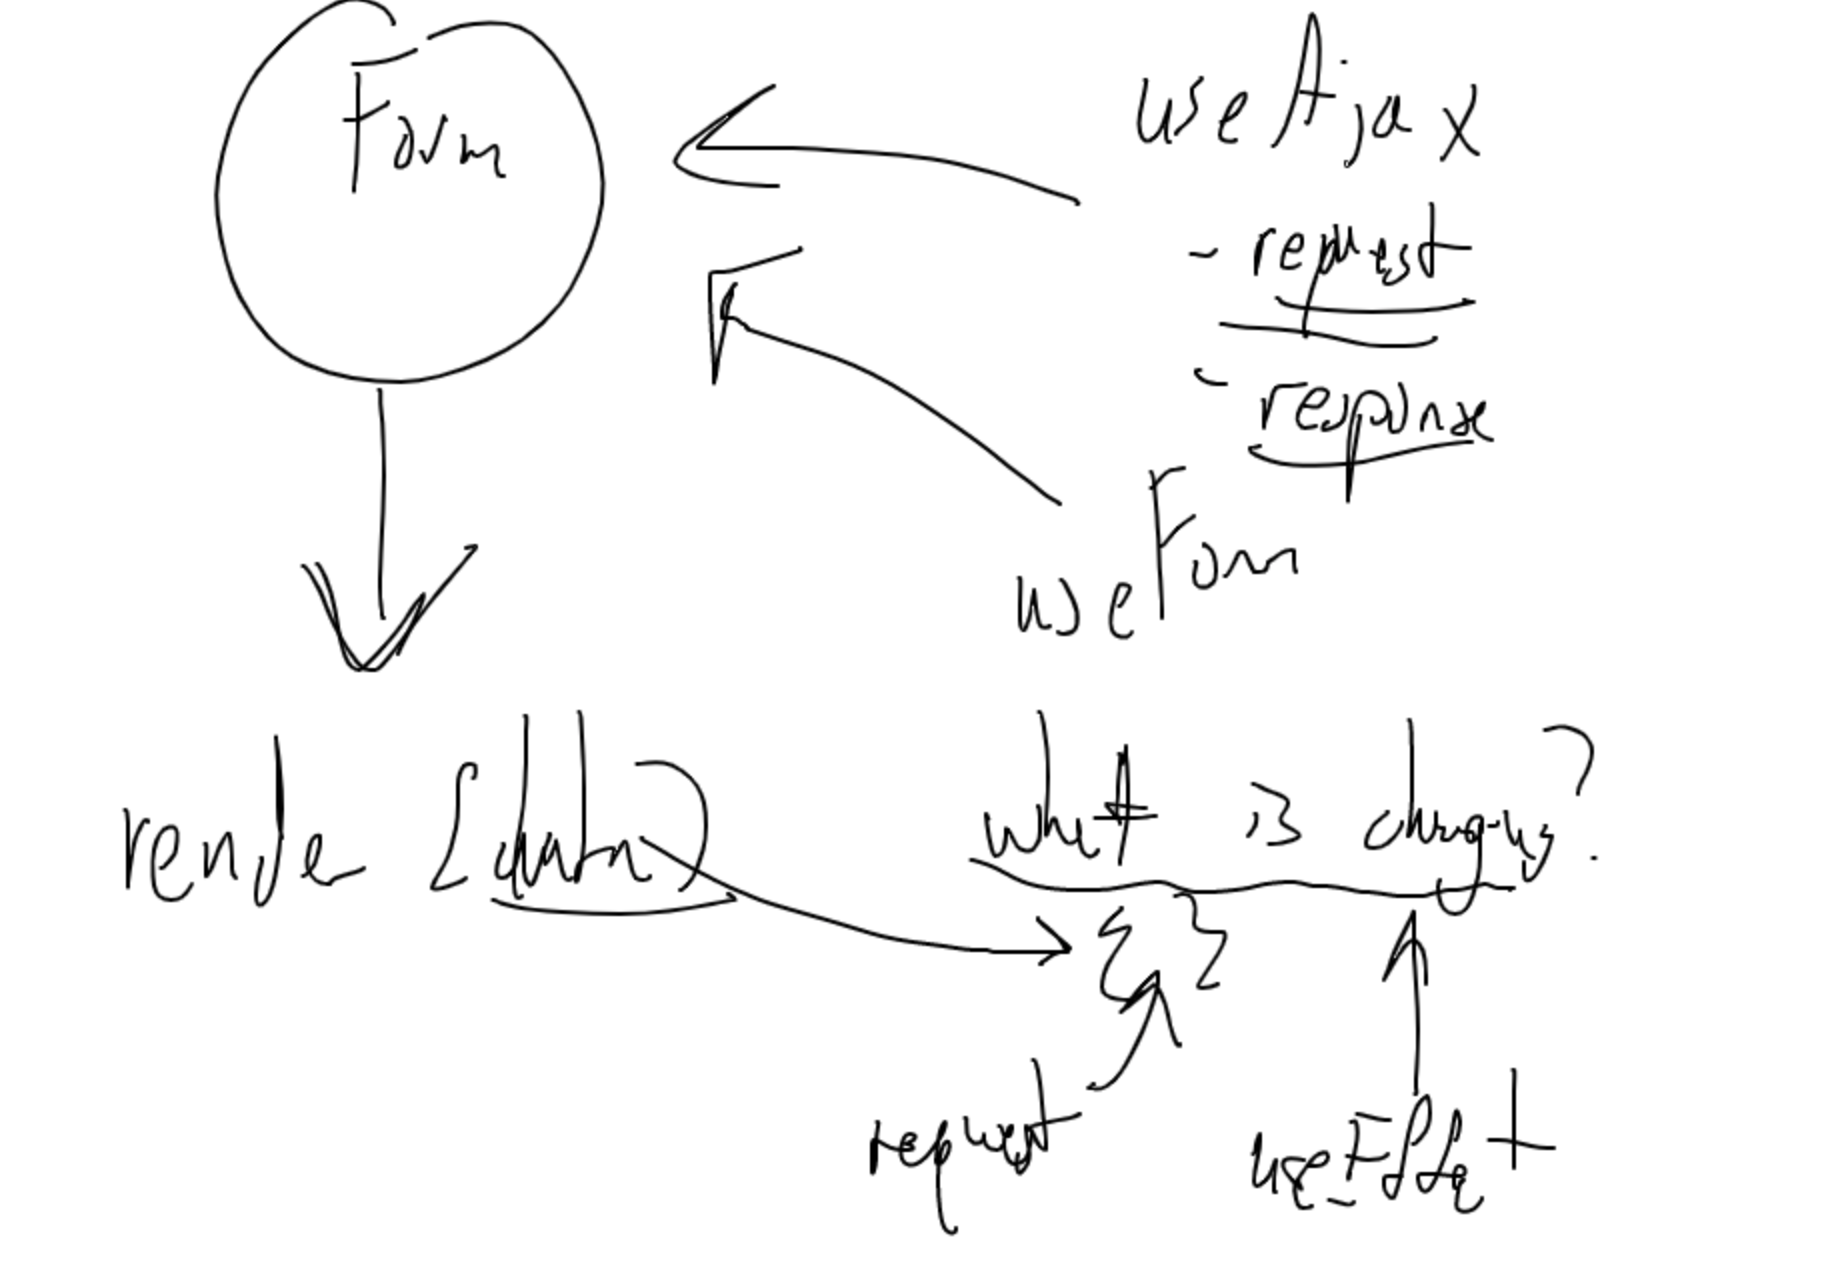 Form
useAjax
- request
- response
useForm
render (data)
what is changing?
{ }
request
useEffect